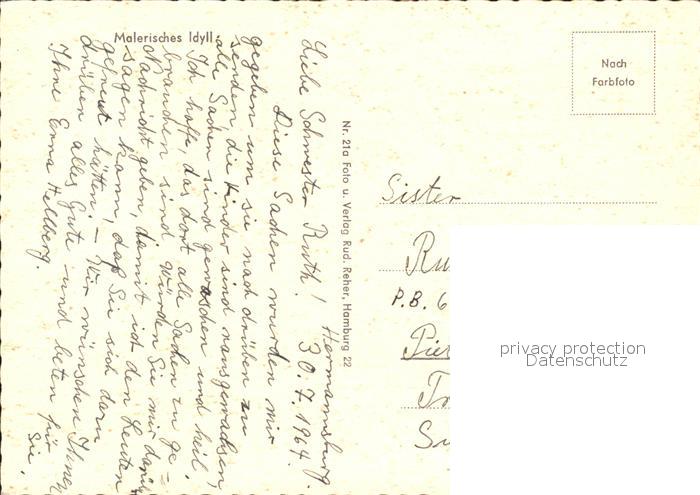 Malerisches Idyll
Hermannsburg
30.7.1964.
Liebe Schwester Ruth!
Diese Sachen wurden mir
gegeben um sie nach drüben zu
senden, die Kinder sind rausgewachsen,
alle Sachen sind gewaschen und heil.
Ich hoffe, das dort alle Sachen zu ge-
brauchen sind. Würden Sie mir darüber
Nachricht geben, damit ich den Leuten
sagen kann, daß Sie sich darü
gefreut hätten. – Wir wünschen Ihnen
drüben alles Gute und beten für
Sie.
Ihne Erna Hellberg.
Nr. 21a Foto u. Verlag Rud. Reher, Hamburg 22
Nach
Farbfoto
Sister
Ru
P.B. 6
Pie
Tr
privacy protection
Datenschutz